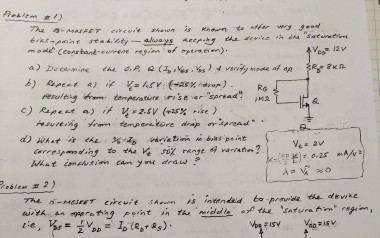 Problem #1)
The n-MOSFET circuit shown is known to offer very good
bias-point stability — always keeping the device in the "saturation
mode" (constant-current region of operation).
a) Determine the O.P. Q (ID, VGS, VDS) & verify mode of op
b) Repeat a) if Vt = 1.5V (-25% drop).
resulting from temperature rise or "spread".
c) Repeat a) if Vt = 2.5V (+25% rise)
resulting from temperature drop or "spread".
d) What is the % ID variation in bias point
corresponding to the Vt 50% range of variation?
What conclusion can you draw?
VDD = 12V
RD = 8KΩ
RG
1MΩ
Q
Vt = 2V
= 0.25 mA/V²
λ = VA⁻¹ ≈ 0
Problem #2)
The n-MOSFET circuit shown is intended to provide the device
with an operating point in the middle of the "saturation" region,
i.e., VDS = ½ VDD = ID (RD + RS).
VDD = 15V
VDD = 15V